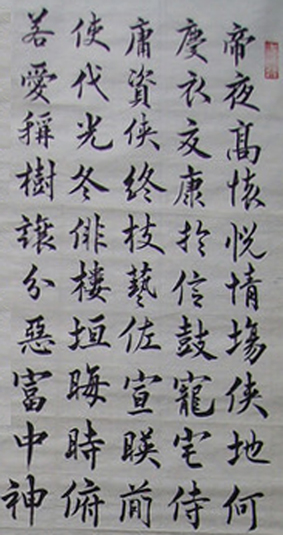 帝夜高懷悅情場俠地何
慶衣交康於信鼓寵宅侍
庸資俠終枝藝佐宣暎前
使代光冬俳樓垣晦時俯
若愛稱樹讓分惡富中神